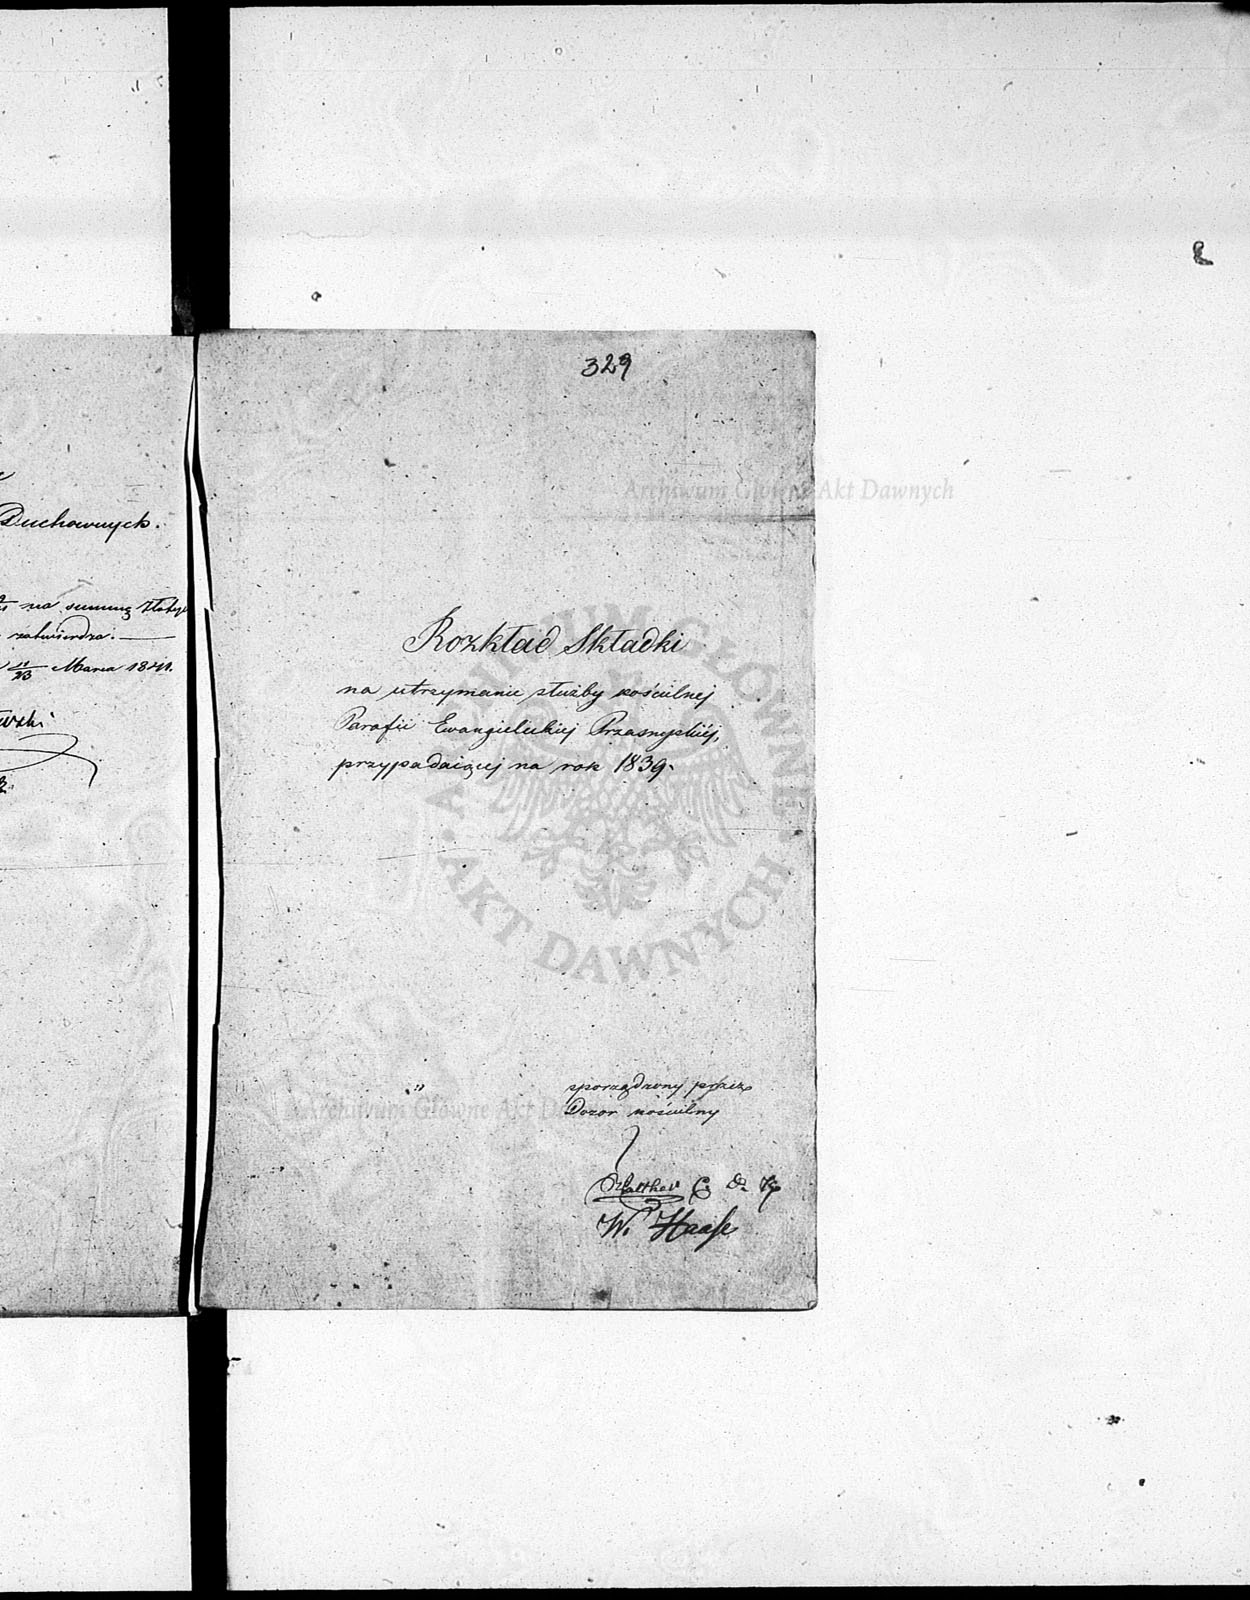 Duchownych.
na summę Złotych
zatwierdza.
11/23 Marca 1841.
329
Archiwum Główne Akt Dawnych
Rozkład Składki
na utrzymanie służby kościelnej
Parafii Ewangielickiej Przasnyskiéj,
przypadaiącej na rok 1839.
ARCHIWUM GŁÓWNE
AKT DAWNYCH
sporządzony przez
Dozor kościelny
Archiwum Główne Akt Dawnych
W. Haase